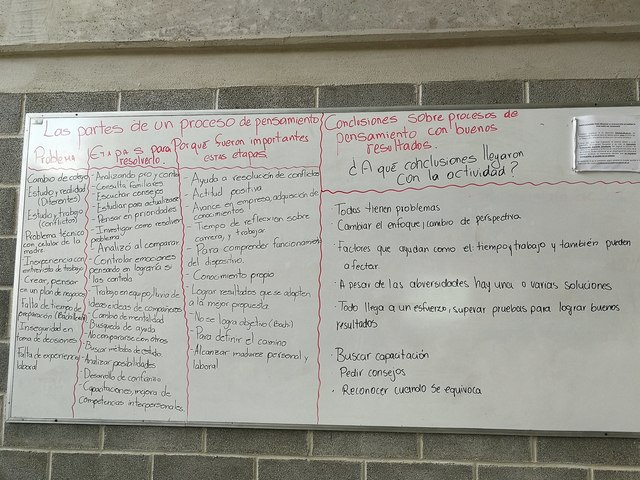 Las partes de un proceso de pensamiento
Problema
Cambio de colegio
Estudio y realidad
(Diferentes)
Estudio y trabajo
(conflictos)
Problema técnico
con celular de la
madre
Inexperiencia con
entrevista de trabajo
Crear, pensar
en un plan de negocios
Falta de tiempo de
preparación (Bachillerato)
Inseguridad en
toma de decisiones
Falta de experiencia
laboral
Etapas para
resolverlo.
- Analizando pro y contra
- Consulta familiares
- Escuchar consejos
- Estudiar para actualizarse
- Pensar en prioridades
- Investigar como resolver
problema
- Analizó al comparar
- Controlar emociones
pensando en lograrla si
las controla
- Trabajo en equipo, lluvia de
ideas e ideas de compañeros
- Cambio de mentalidad
- Busqueda de ayuda
- No compararse con otros
- Buscar metodo de estudio
- Analizar posibilidades
- Desarrollo de confianza
- Capacitaciones, mejora de
competencias interpersonales.
Porqué fueron importantes
estas etapas
- Ayuda a resolución de conflictos
- Actitud positiva
- Avance en empresa, adquisición de
conocimientos
- Tiempo de reflexión sobre
carrera, y trabajar
- Para comprender funcionamiento
del dispositivo.
- Conocimiento propio
- Lograr resultados que se adapten
a la mejor propuesta.
- No se logra objetivo (Bach)
- Para definir el camino
- Alcanzar madurez personal y
laboral
Conclusiones sobre procesos de
pensamiento con buenos
resultados.
¿A qué conclusiones llegaron
con la actividad?
Todos tienen problemas
Cambiar el enfoque; cambio de perspectiva
· Factores que ayudan como el tiempo y trabajo y también pueden
afectar.
· A pesar de las abversidades hay una o varias soluciones
Todo llega a un esfuerzo, superar pruebas para lograr buenos
resultados
· Buscar capacitación
Pedir consejos
· Reconocer cuando se equivoca